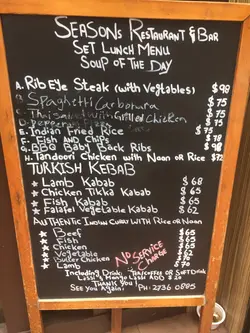 SEASONS RESTAURANT & BAR
SET LUNCH MENU
SOUP OF THE DAY
A. RIB EYE STEAK (WITH VEGTABLES) $98
B. SPAGHETTI CARBONARA $75
C. THAI SALAD WITH GRILLED CHICKEN $75
D. PEPPERONI PIZZA
E. INDIAN FRIED RICE $75
F. FISH AND CHIPS $78
G. BBQ BABY BACK RIBS $98
H. TANDOORI CHICKEN WITH NAAN OR RICE $72
TURKISH KEBAB
* LAMB KABAB $68
* CHICKEN TIKKA KABAB $65
* FISH KABAB $65
* FALAFEL VEGETABLE KABAB $62
AUTHENTIC INDIAN CURRY WITH RICE OR NAAN
* BEEF $65
* FISH $65
* CHICKEN $65
* VEGETABLE $62
* BUTTER CHICKEN
* LAMB $70
NO SERVICE CHARGE
INCLUDING DRINK: TEA/COFFEE OR SOFT DRINK
LASSI & MANGO LASSI ADD $20
THANK YOU!
SEE YOU AGAIN! PH: 2736 0805